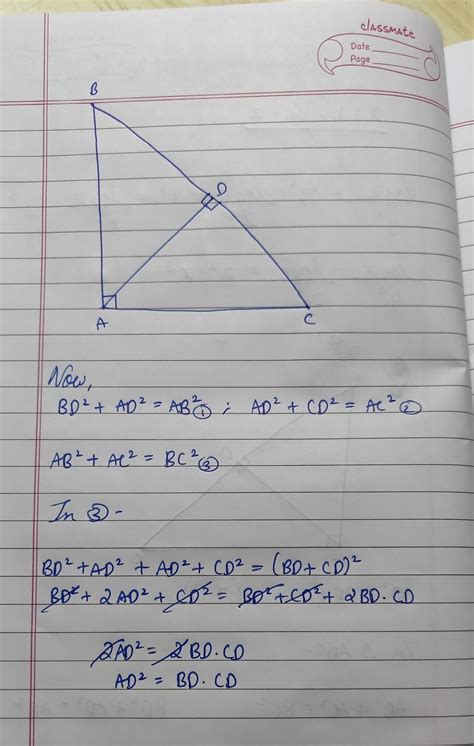 classmate
Date
Page
B
D
A
C
Now,
BD² + AD² = AB² ① ; AD² + CD² = AC² ②
AB² + AC² = BC² ③
In ③ -
BD² + AD² + AD² + CD² = (BD + CD)²
BD² + 2AD² + CD² = BD² + CD² + 2BD · CD
2AD² = 2BD · CD
AD² = BD · CD